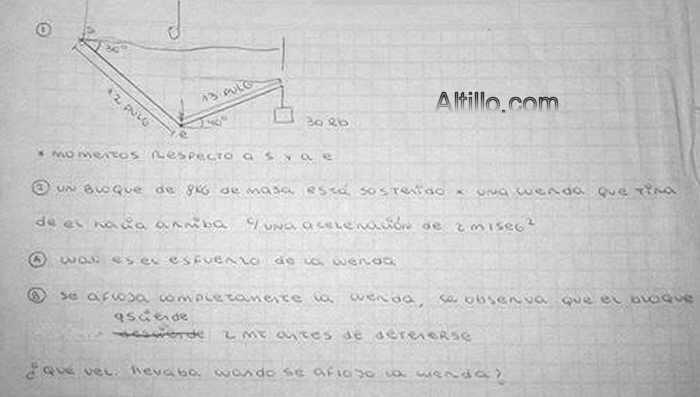 ①
S
30°
12 PULG
13 PULG
e
40°
30 lb
Altillo.com
* MOMENTOS RESPECTO A S Y A e
② UN BLOQUE DE 8KG DE MASA ESTÁ SOSTENIDO x UNA CUERDA QUE TIRA
DE EL HACIA ARRIBA C/ UNA ACELERACIÓN DE 2 m/SEG²
Ⓐ CUAL ES EL ESFUERZO DE LA CUERDA
Ⓑ SE AFLOJA COMPLETAMENTE LA CUERDA, SE OBSERVA QUE EL BLOQUE
ASCIENDE
2 MT ANTES DE DETENERSE
¿QUE VEL. LLEVABA CUANDO SE AFLOJO LA CUERDA?